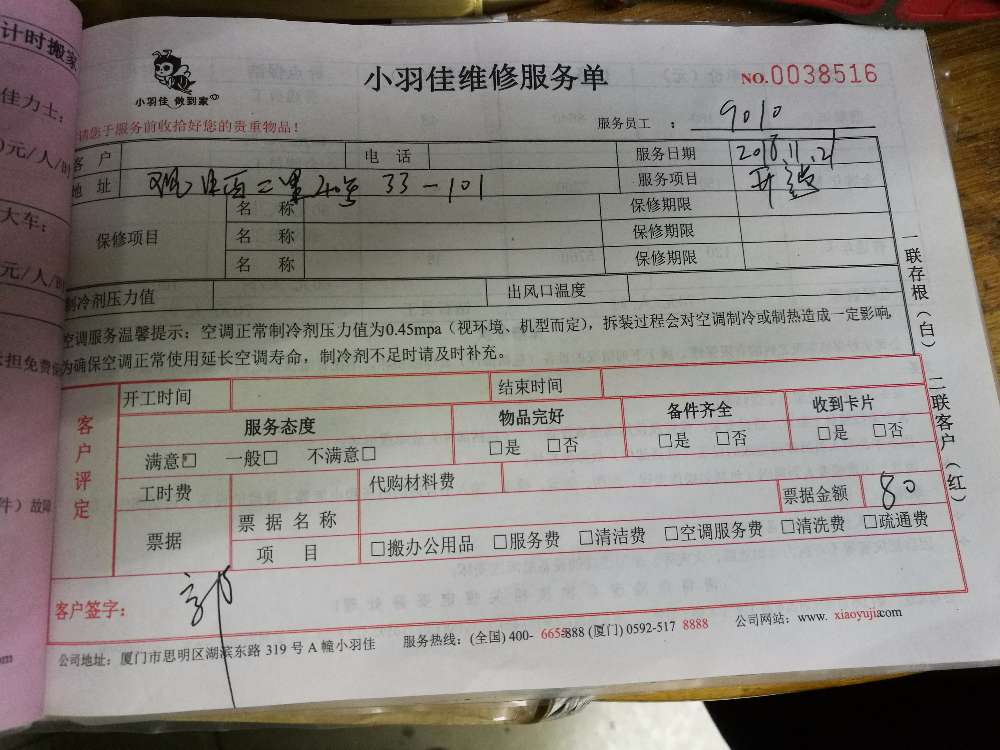 计时搬家
佳力士：
0元/人/时
大车：
元/人/时
担免费
件）故障
om
小羽佳 做到家
小羽佳维修服务单
NO.0038516
请您于服务前收拾好您的贵重物品！
服务员工 ： 9010
客 户 电 话 服务日期 2018.11.21
地 址 33-101 服务项目 开锁
保修项目 名 称 保修期限
名 称 保修期限
名 称 保修期限
制冷剂压力值 出风口温度
空调服务温馨提示：空调正常制冷剂压力值为0.45mpa（视环境、机型而定），拆装过程会对空调制冷或制热造成一定影响，
为确保空调正常使用延长空调寿命，制冷剂不足时请及时补充。
客户评定
开工时间 结束时间
服务态度 物品完好 备件齐全 收到卡片
满意□ 一般□ 不满意□ □是 □否 □是 □否 □是 □否
工时费 代购材料费
票据 票据名称 票据金额 80
项 目 □搬办公用品 □服务费 □清洁费 □空调服务费 □清洗费 □疏通费
客户签字： 郭
公司地址：厦门市思明区湖滨东路 319 号 A 幢小羽佳 服务热线：(全国) 400- 665-888 (厦门) 0592-517 8888 公司网站：www. xiaoyujia.com
一联存根（白） 二联客户（红）